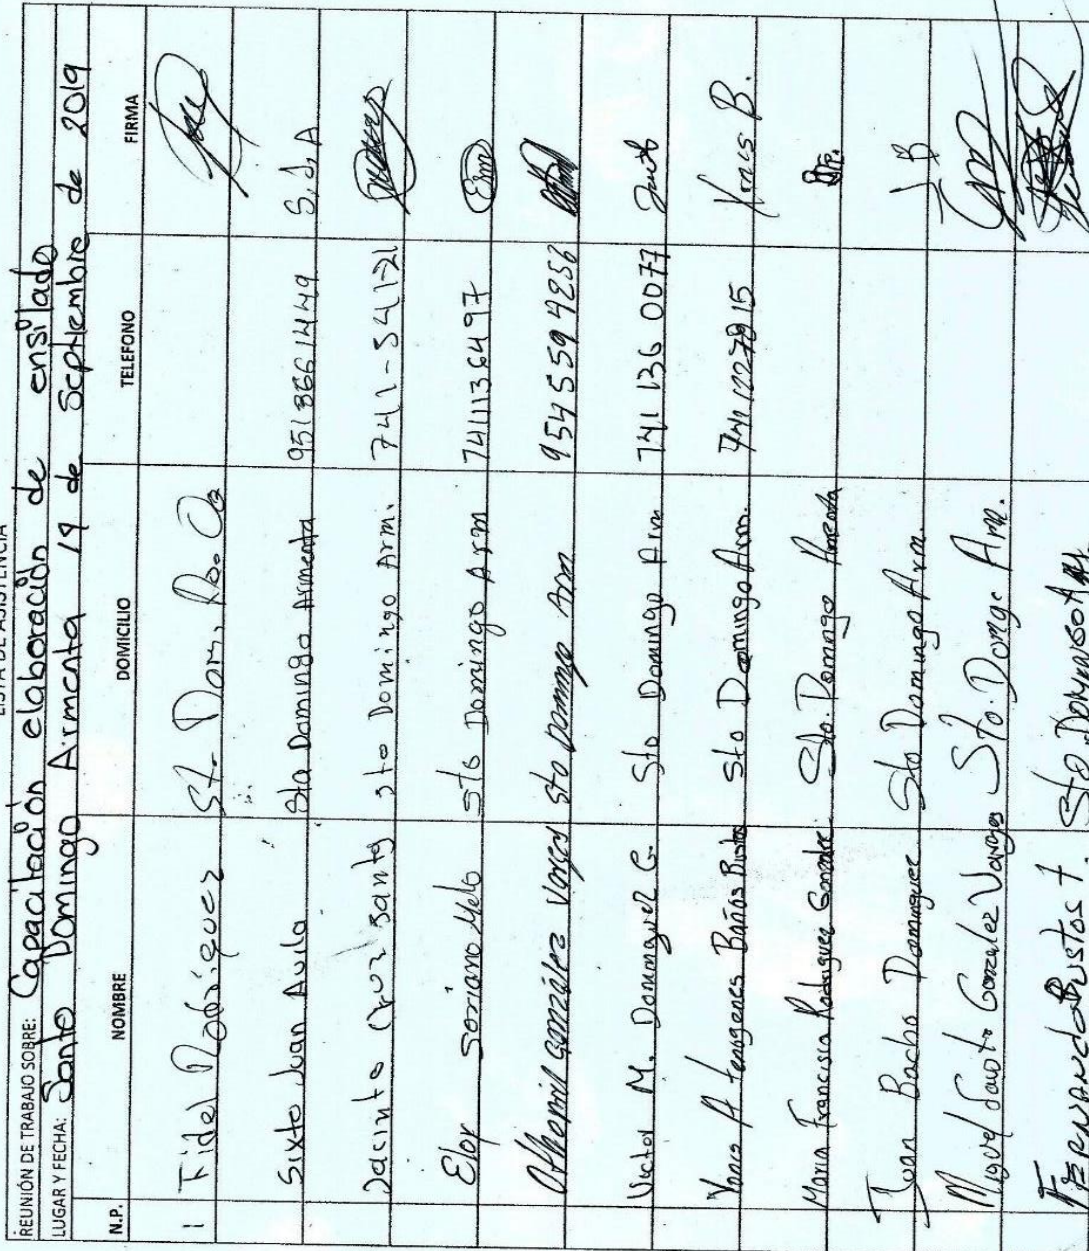 LISTA DE ASISTENCIA
REUNIÓN DE TRABAJO SOBRE: Capacitación elaboración de ensilado
LUGAR Y FECHA: Santo Domingo Armenta 19 de Septiembre de 2019
N.P. NOMBRE DOMICILIO TELEFONO FIRMA
1 Fidel Rodríguez St. Dom.
Sixto Juan Avila Sto Domingo Armenta 951 886 1449 S.J.A
Jacinto Cruz Santos sto Domingo Arm. 741-341-21
Eloy soriano Melo sto Domingo Arm 7411136497 Elm
González Vargas Sto Domingo Arm 954 559 4252
Victor M. Dominguez C. Sto Domingo Arm. 741 136 0077
Baños Bustos Sto Domingo Arm. B.
Maria Francisca Rodriguez Gonzalez Sto. Domingo Armenta
Juan Bacho Dominguez Sto Domingo Arm. J B
Miguel Gonzalez Vargas Sto. Domgo Arm.
Fernando Bustos Sto. Domingo